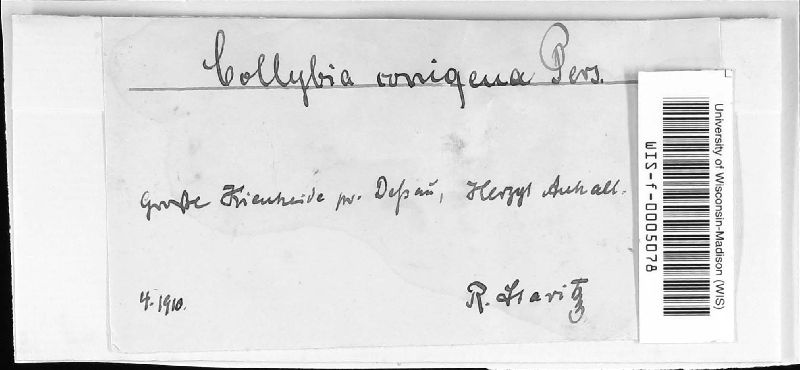 Collybia conigena Pers.
Große Kienheide pr. Deßau, Herzgt Anhalt.
4. 1910.
R. Staritz
University of Wisconsin-Madison (WIS)
WIS-f-0005078